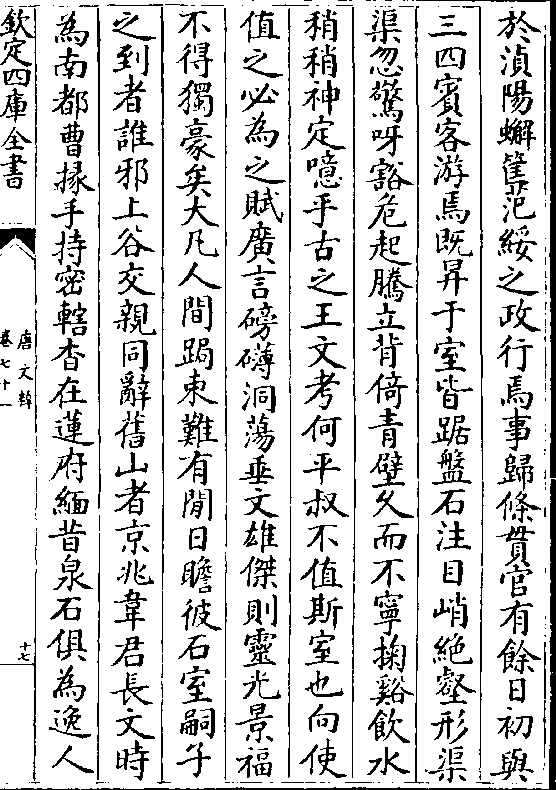 於湞陽蠏篗汜綏之政行焉事歸條貫官有餘日初與
三四賓客游焉既昇于室皆踞盤石注目峭絶壑形渠
渠忽驚呀豁危起騰立背倚青壁久而不寧掬谿飲水
稍稍神定噫乎古之王文考何平叔不值斯室也向使
值之必為之賦廣言磅礴洞蕩垂文雄傑則靈光景福
不得獨豪矣大凡人間跼束難有閒日瞻彼石室嗣子
之到者誰邪上谷交親同辭舊山者京兆韋君長文時
為南都曹掾手持密轄杳在蓮府緬昔泉石俱為逸人
欽定四庫全書
唐文粹
卷七十一
十七